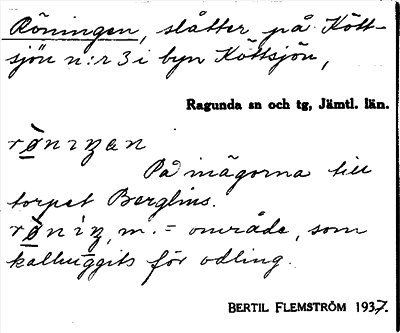 Röningen, slåtter på Kött-
sjön n:r 3 i byn Köttsjön,
Ragunda sn och tg, Jämtl. län.
rø̀nıŋen
På mägorna till
torpet Berglins.
rø̀nıŋ, m. = område, som
kalhuggits för odling.
BERTIL FLEMSTRÖM 1937.